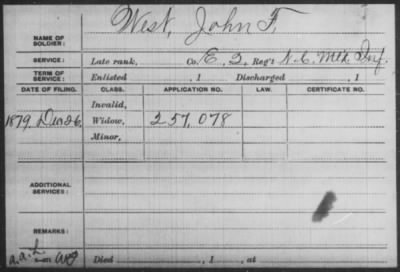 West, John F.
NAME OF
SOLDIER:
SERVICE: Late rank, Co. E, 2, Reg't N.C. Mtd. Inf.
TERM OF
SERVICE: Enlisted , 1 Discharged , 1
DATE OF FILING. CLASS. APPLICATION NO. LAW. CERTIFICATE NO.
Invalid,
1879, Dec 26. Widow, 257,078
Minor,
ADDITIONAL
SERVICES:
REMARKS:
Died , 1 , at